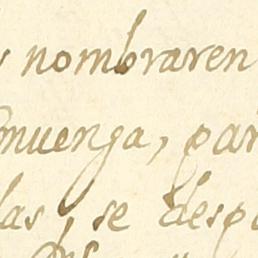 nombraren
muenga, par
las, se desp